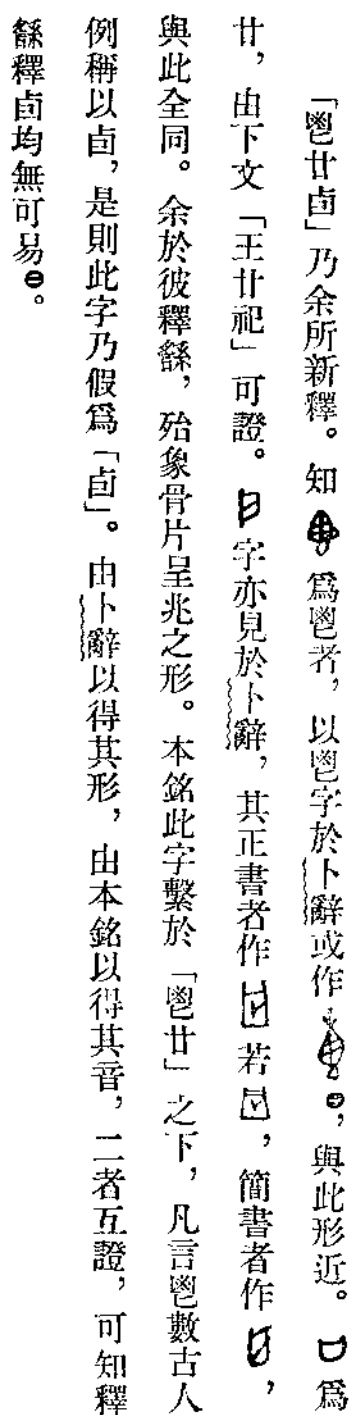 「鬯廿卣」乃余所新釋。知爲鬯者，以鬯字於卜辭或作㊀，與此形近。爲
廿，由下文「王廿祀」可證。字亦見於卜辭，其正書者作若，簡書者作，
與此全同。余於彼釋繇，殆象骨片呈兆之形。本銘此字繫於「鬯廿」之下，凡言鬯數古人
例稱以卣，是則此字乃假爲「卣」。由卜辭以得其形，由本銘以得其音，二者互證，可知釋
繇釋卣均無可易㊀。